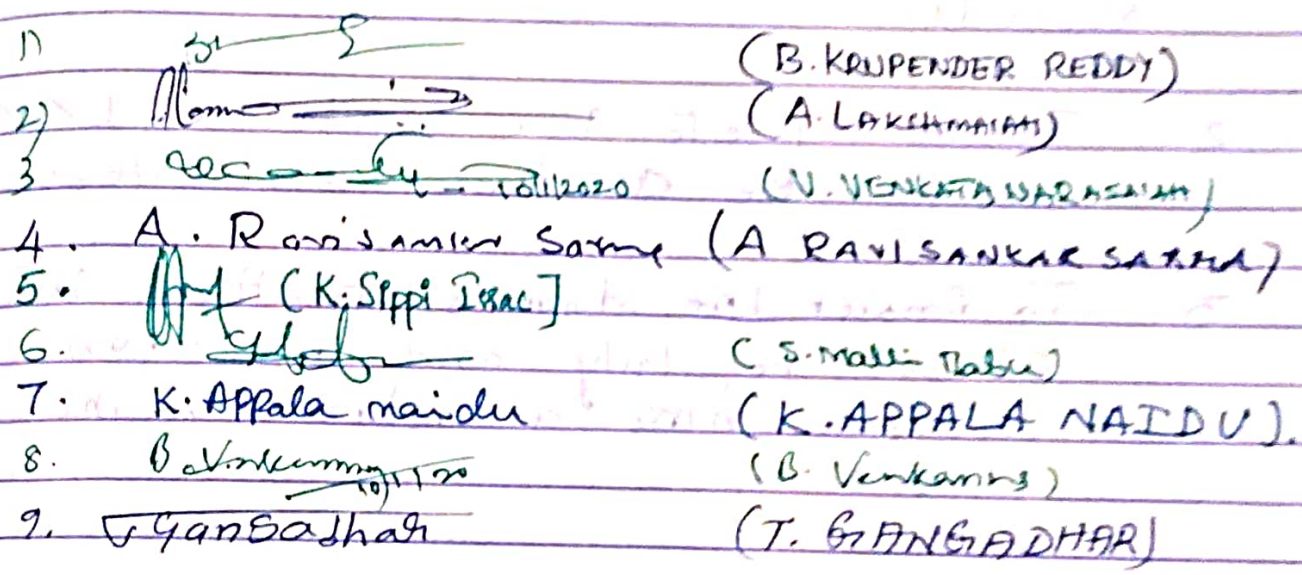 1) (B. KRUPENDER REDDY)
2) (A. LAKSHMAIAH)
3 10/1/2020 (V. VENKATA NARASAIAH)
4. A. Ravisanker Sarma (A RAVISANKAR SARMA)
5. (K. Sippi Issac]
6. (S. Malli Babu)
7. K. Appala naidu (K. APPALA NAIDU).
8. B. Venkanna 10/1/20 (B. Venkanna)
9. T Gangadhar (T. GANGADHAR)